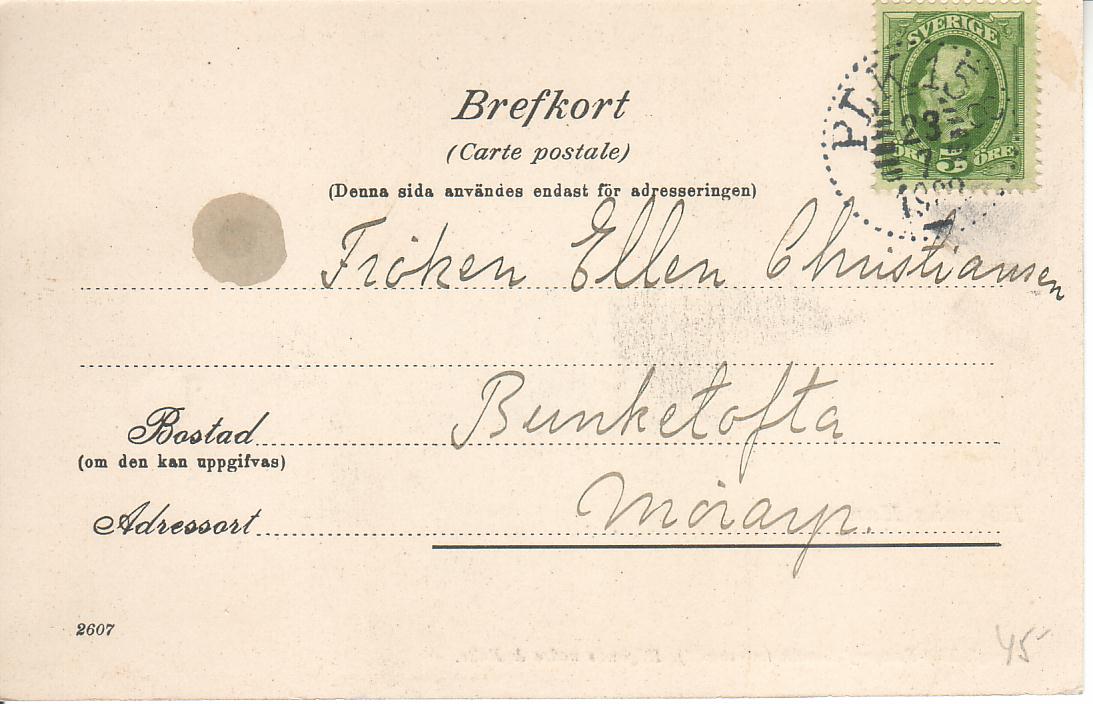 SVERIGE
ÖRE 5 ÖRE
PLK 158
23
7
1903
Brefkort
(Carte postale)
(Denna sida användes endast för adresseringen)
Fröken Ellen Christiansen
Bostad Bunketofta
(om den kan uppgifvas)
Adressort Mörarp.
2607
45